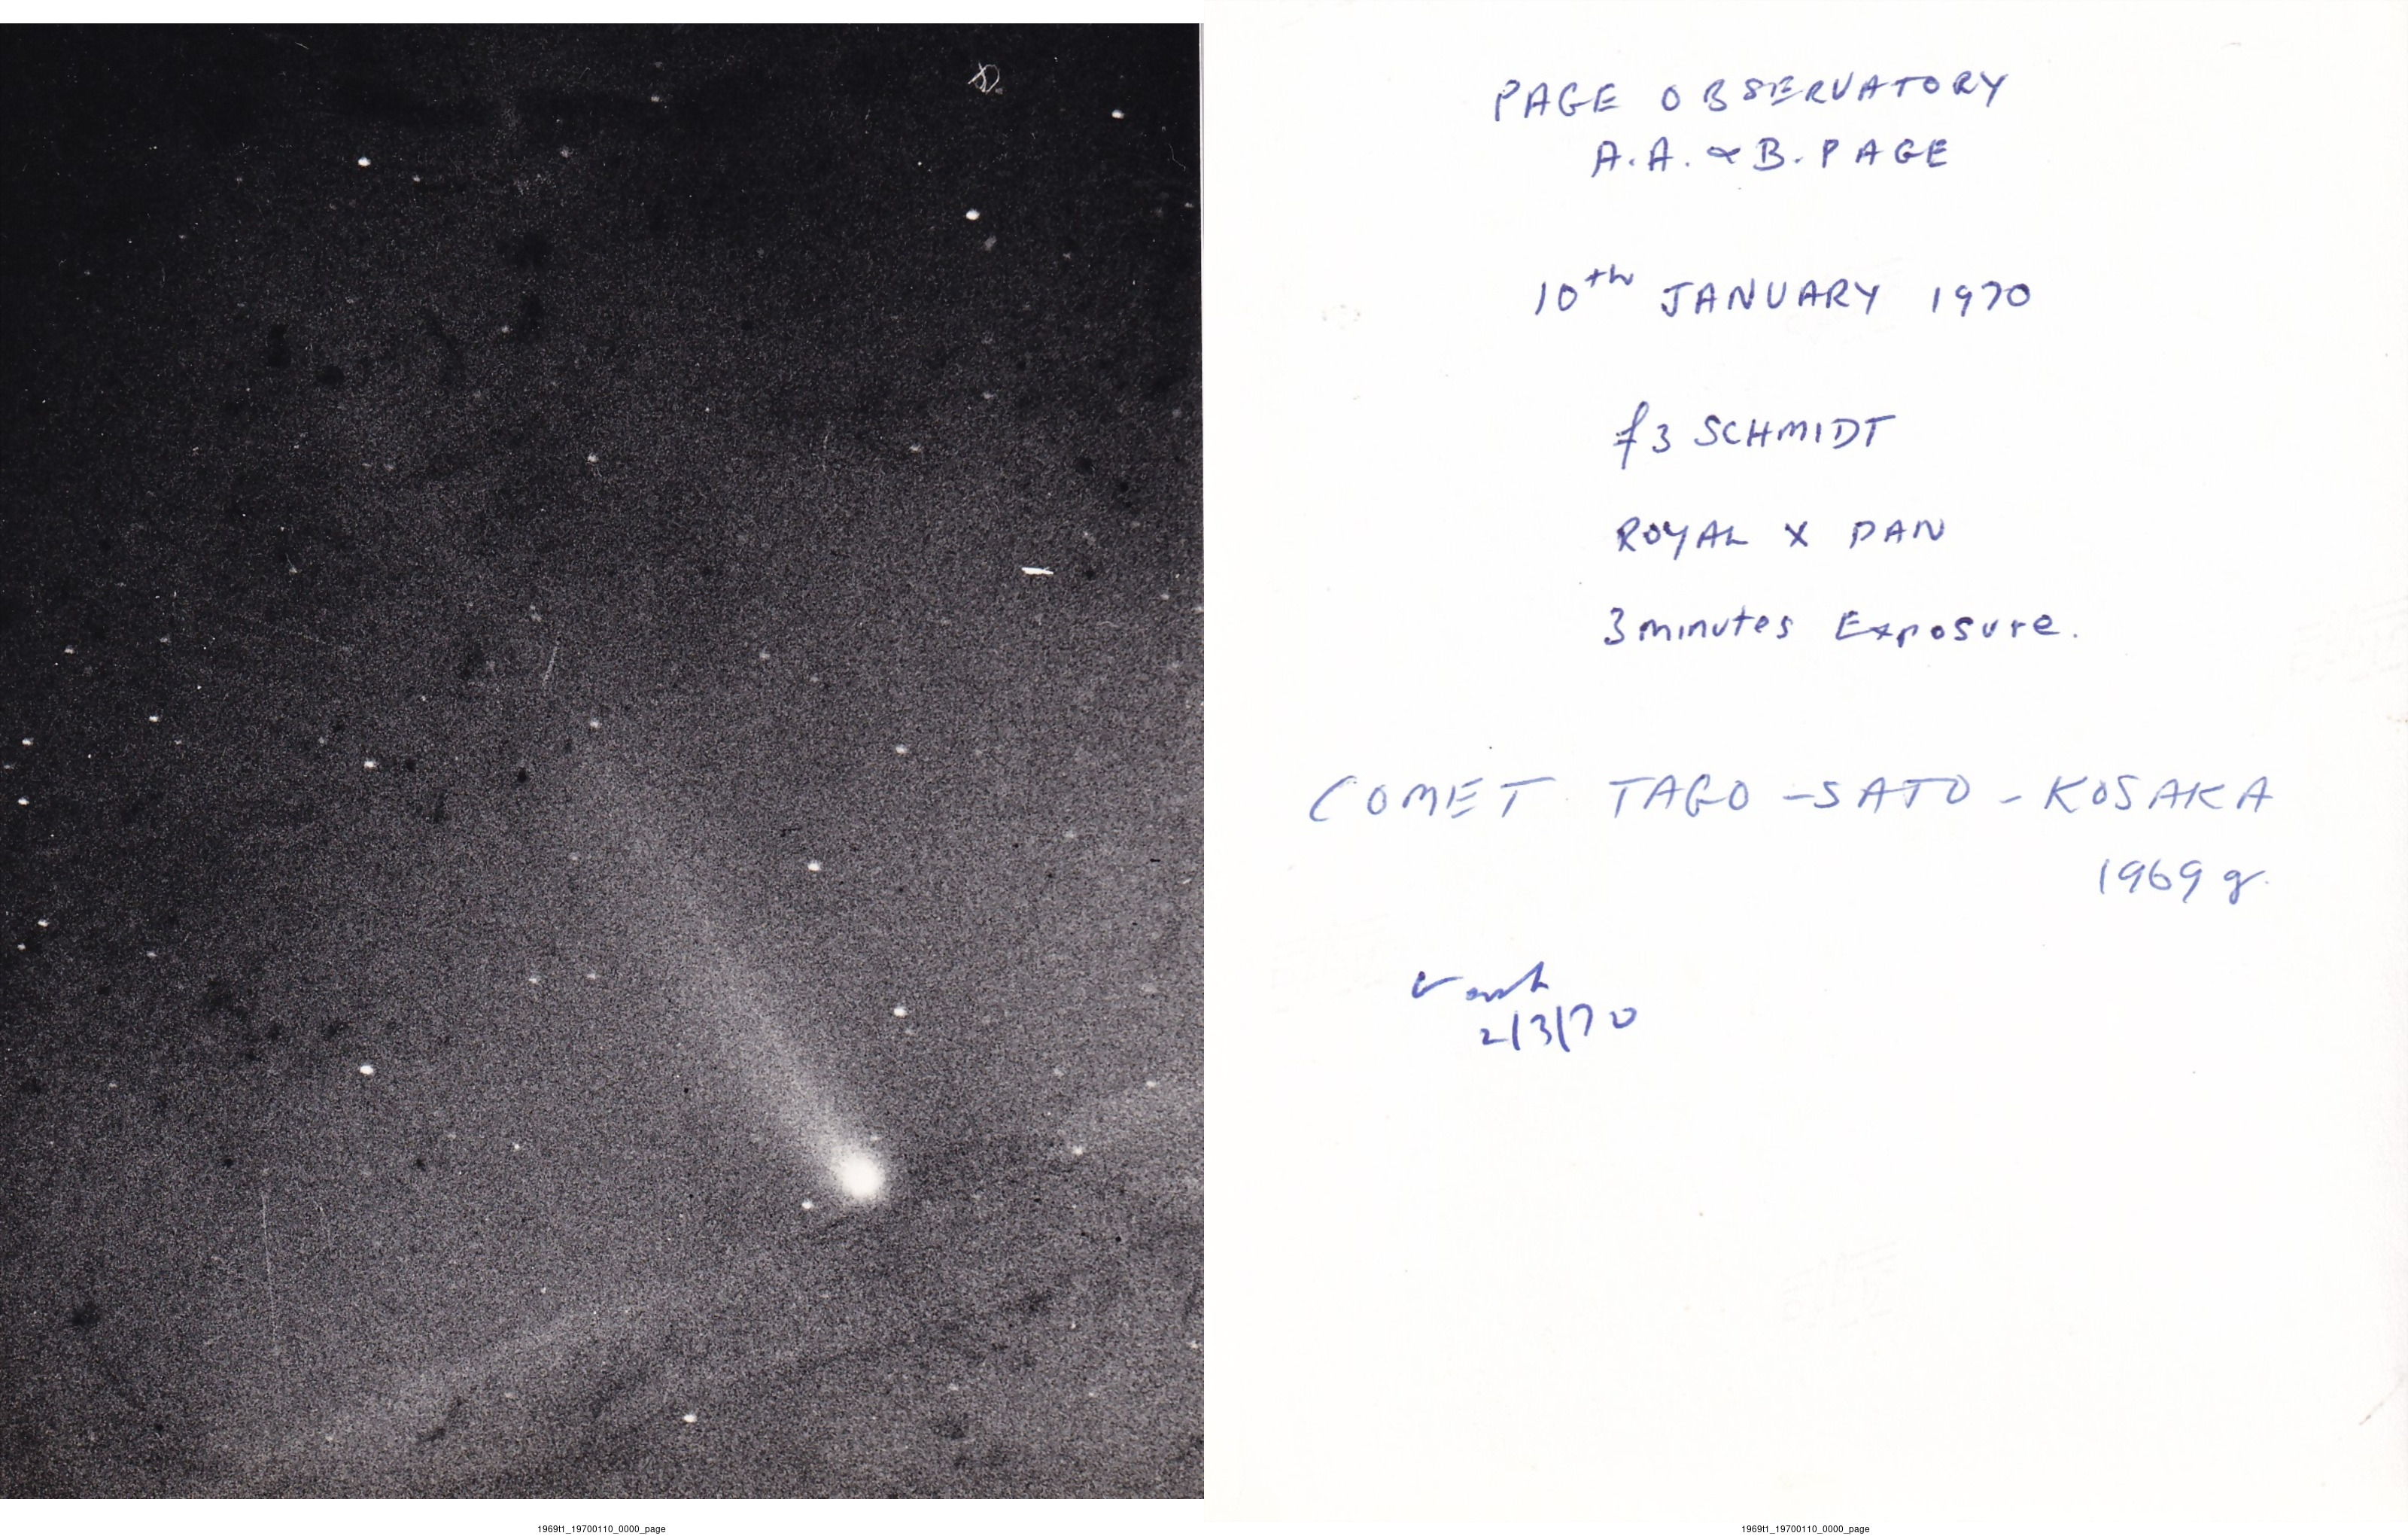 PAGE OBSERVATORY
A.A. & B. PAGE
10th JANUARY 1970
f3 SCHMIDT
ROYAL X PAN
3 minutes Exposure.
COMET TAGO-SATO-KOSAKA
1969 g.
2/3/70
1969t1_19700110_0000_page
1969t1_19700110_0000_page